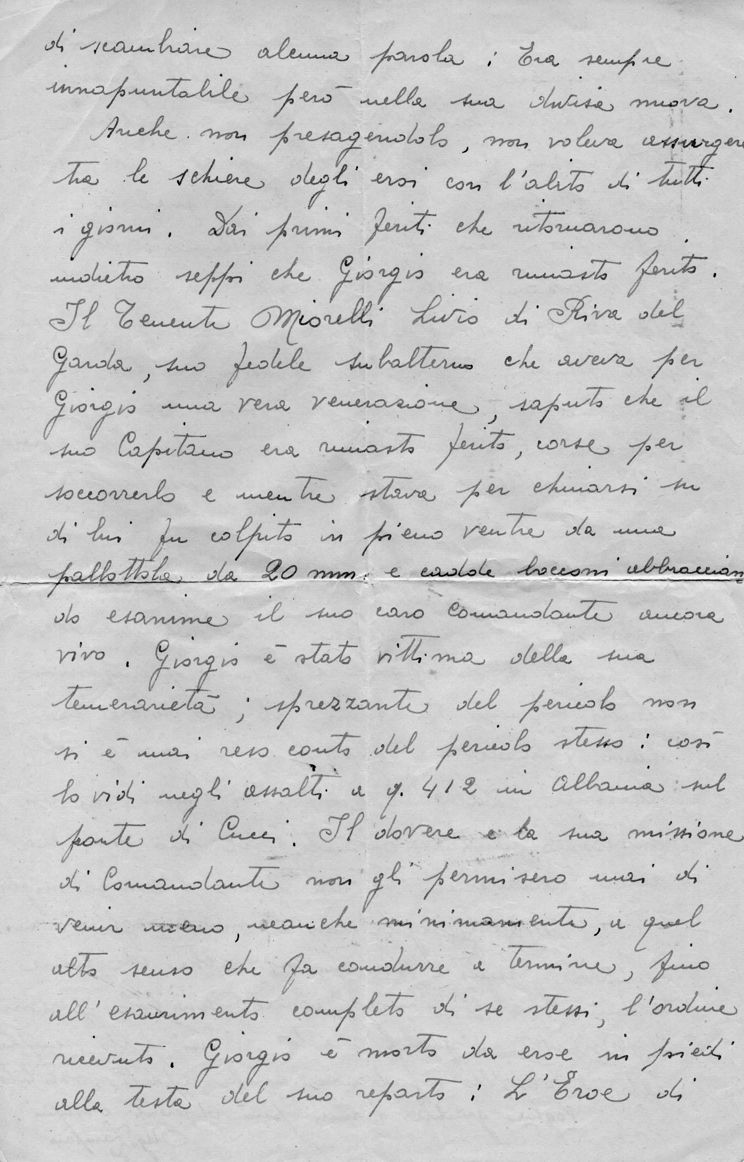 di scambiare alcuna parola : Era sempre
innapuntabile però nella sua divisa nuova.
Anche non presagendolo, non voleva assurgere
tra le schiere degli eroi con l'abito di tutti
i giorni. Dai primi feriti che ritornarono
indietro seppi che Giorgio era rimasto ferito.
Il Tenente Miorelli Livio di Riva del
Garda, suo fedele subalterno che aveva per
Giorgio una vera venerazione, saputo che il
suo Capitano era rimasto ferito, corse per
soccorrerlo e mentre stava per chinarsi su
di lui fu colpito in pieno ventre da una
pallottola da 20 mm. e cadde bocconi abbraccian
do esanime il suo caro Comandante ancora
vivo. Giorgio è stato vittima della sua
temerarietà ; sprezzante del pericolo non
si è mai reso conto del pericolo stesso : così
lo vidi negli assalti a q. 412 in Albania sul
fronte di Cucci. Il dovere e la sua missione
di Comandante non gli permisero mai di
venir meno, neanche minimamente, a quel
alto senso che fa condurre a termine, fino
all'esaurimento completo di se stessi, l'ordine
ricevuto. Giorgio è morto da eroe in piedi
alla testa del suo reparto : L'Eroe di